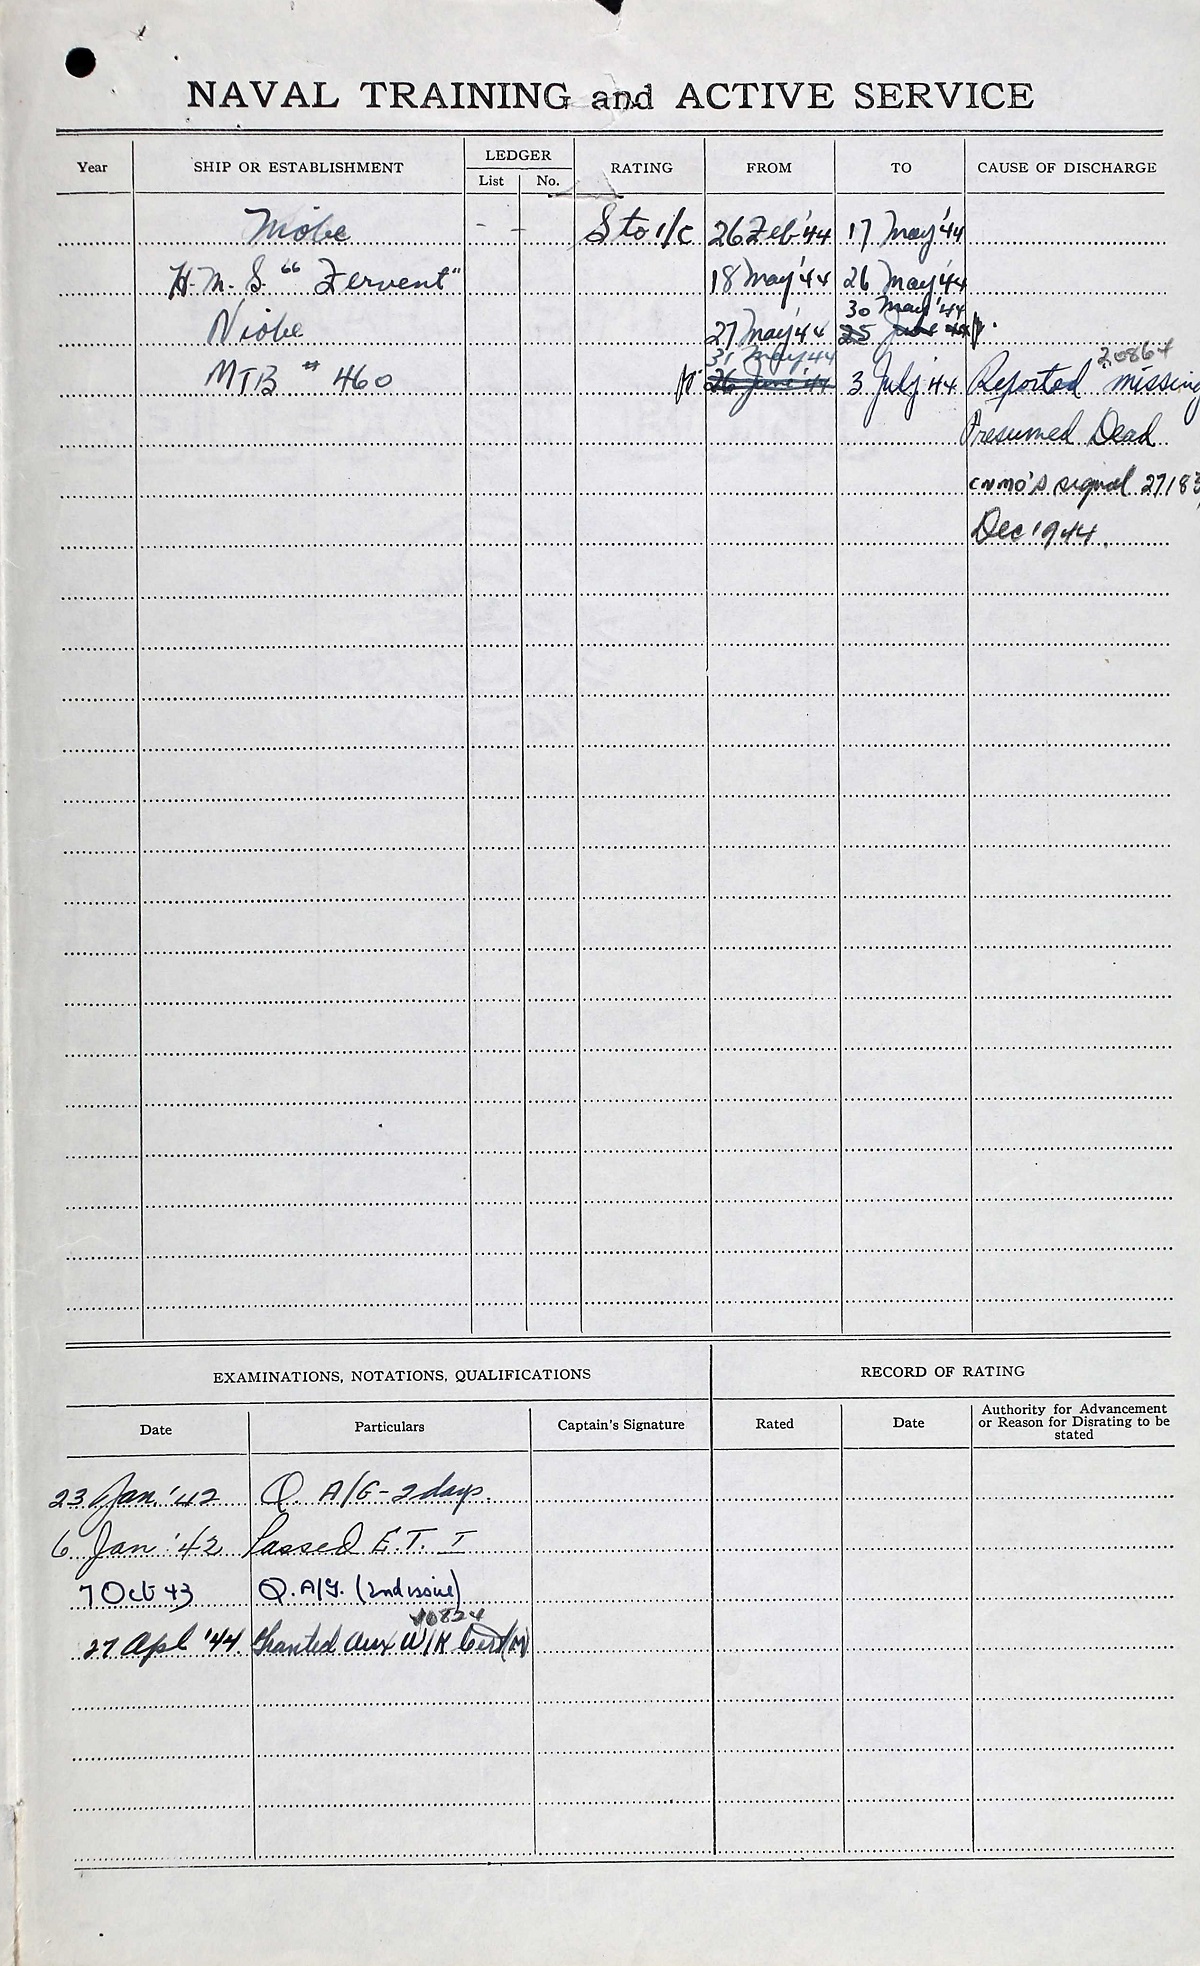 NAVAL TRAINING and ACTIVE SERVICE
Year SHIP OR ESTABLISHMENT LEDGER List No. RATING FROM TO CAUSE OF DISCHARGE
Niobe - - Sto 1/c 26 Feb '44 17 May '44
H.M.S. "Fervent" 18 May '44 26 May '44
30 May '44
Niobe 27 May '44 25 June 44
31 May 44 20864
MTB # 460 26 June '44 3 July '44 Reported missing
Presumed Dead
CNMO's signal 27183
Dec 1944.
EXAMINATIONS, NOTATIONS, QUALIFICATIONS RECORD OF RATING
Date Particulars Captain's Signature Rated Date Authority for Advancement or Reason for Disrating to be stated
23 Jan. '42 Q. A/G - 2 days.
6 Jan '42 Passed E.T. I
7 Oct 43 Q. A/G. (2nd issue)
10824
27 Apl '44 Granted Aux W/K Cert (M)